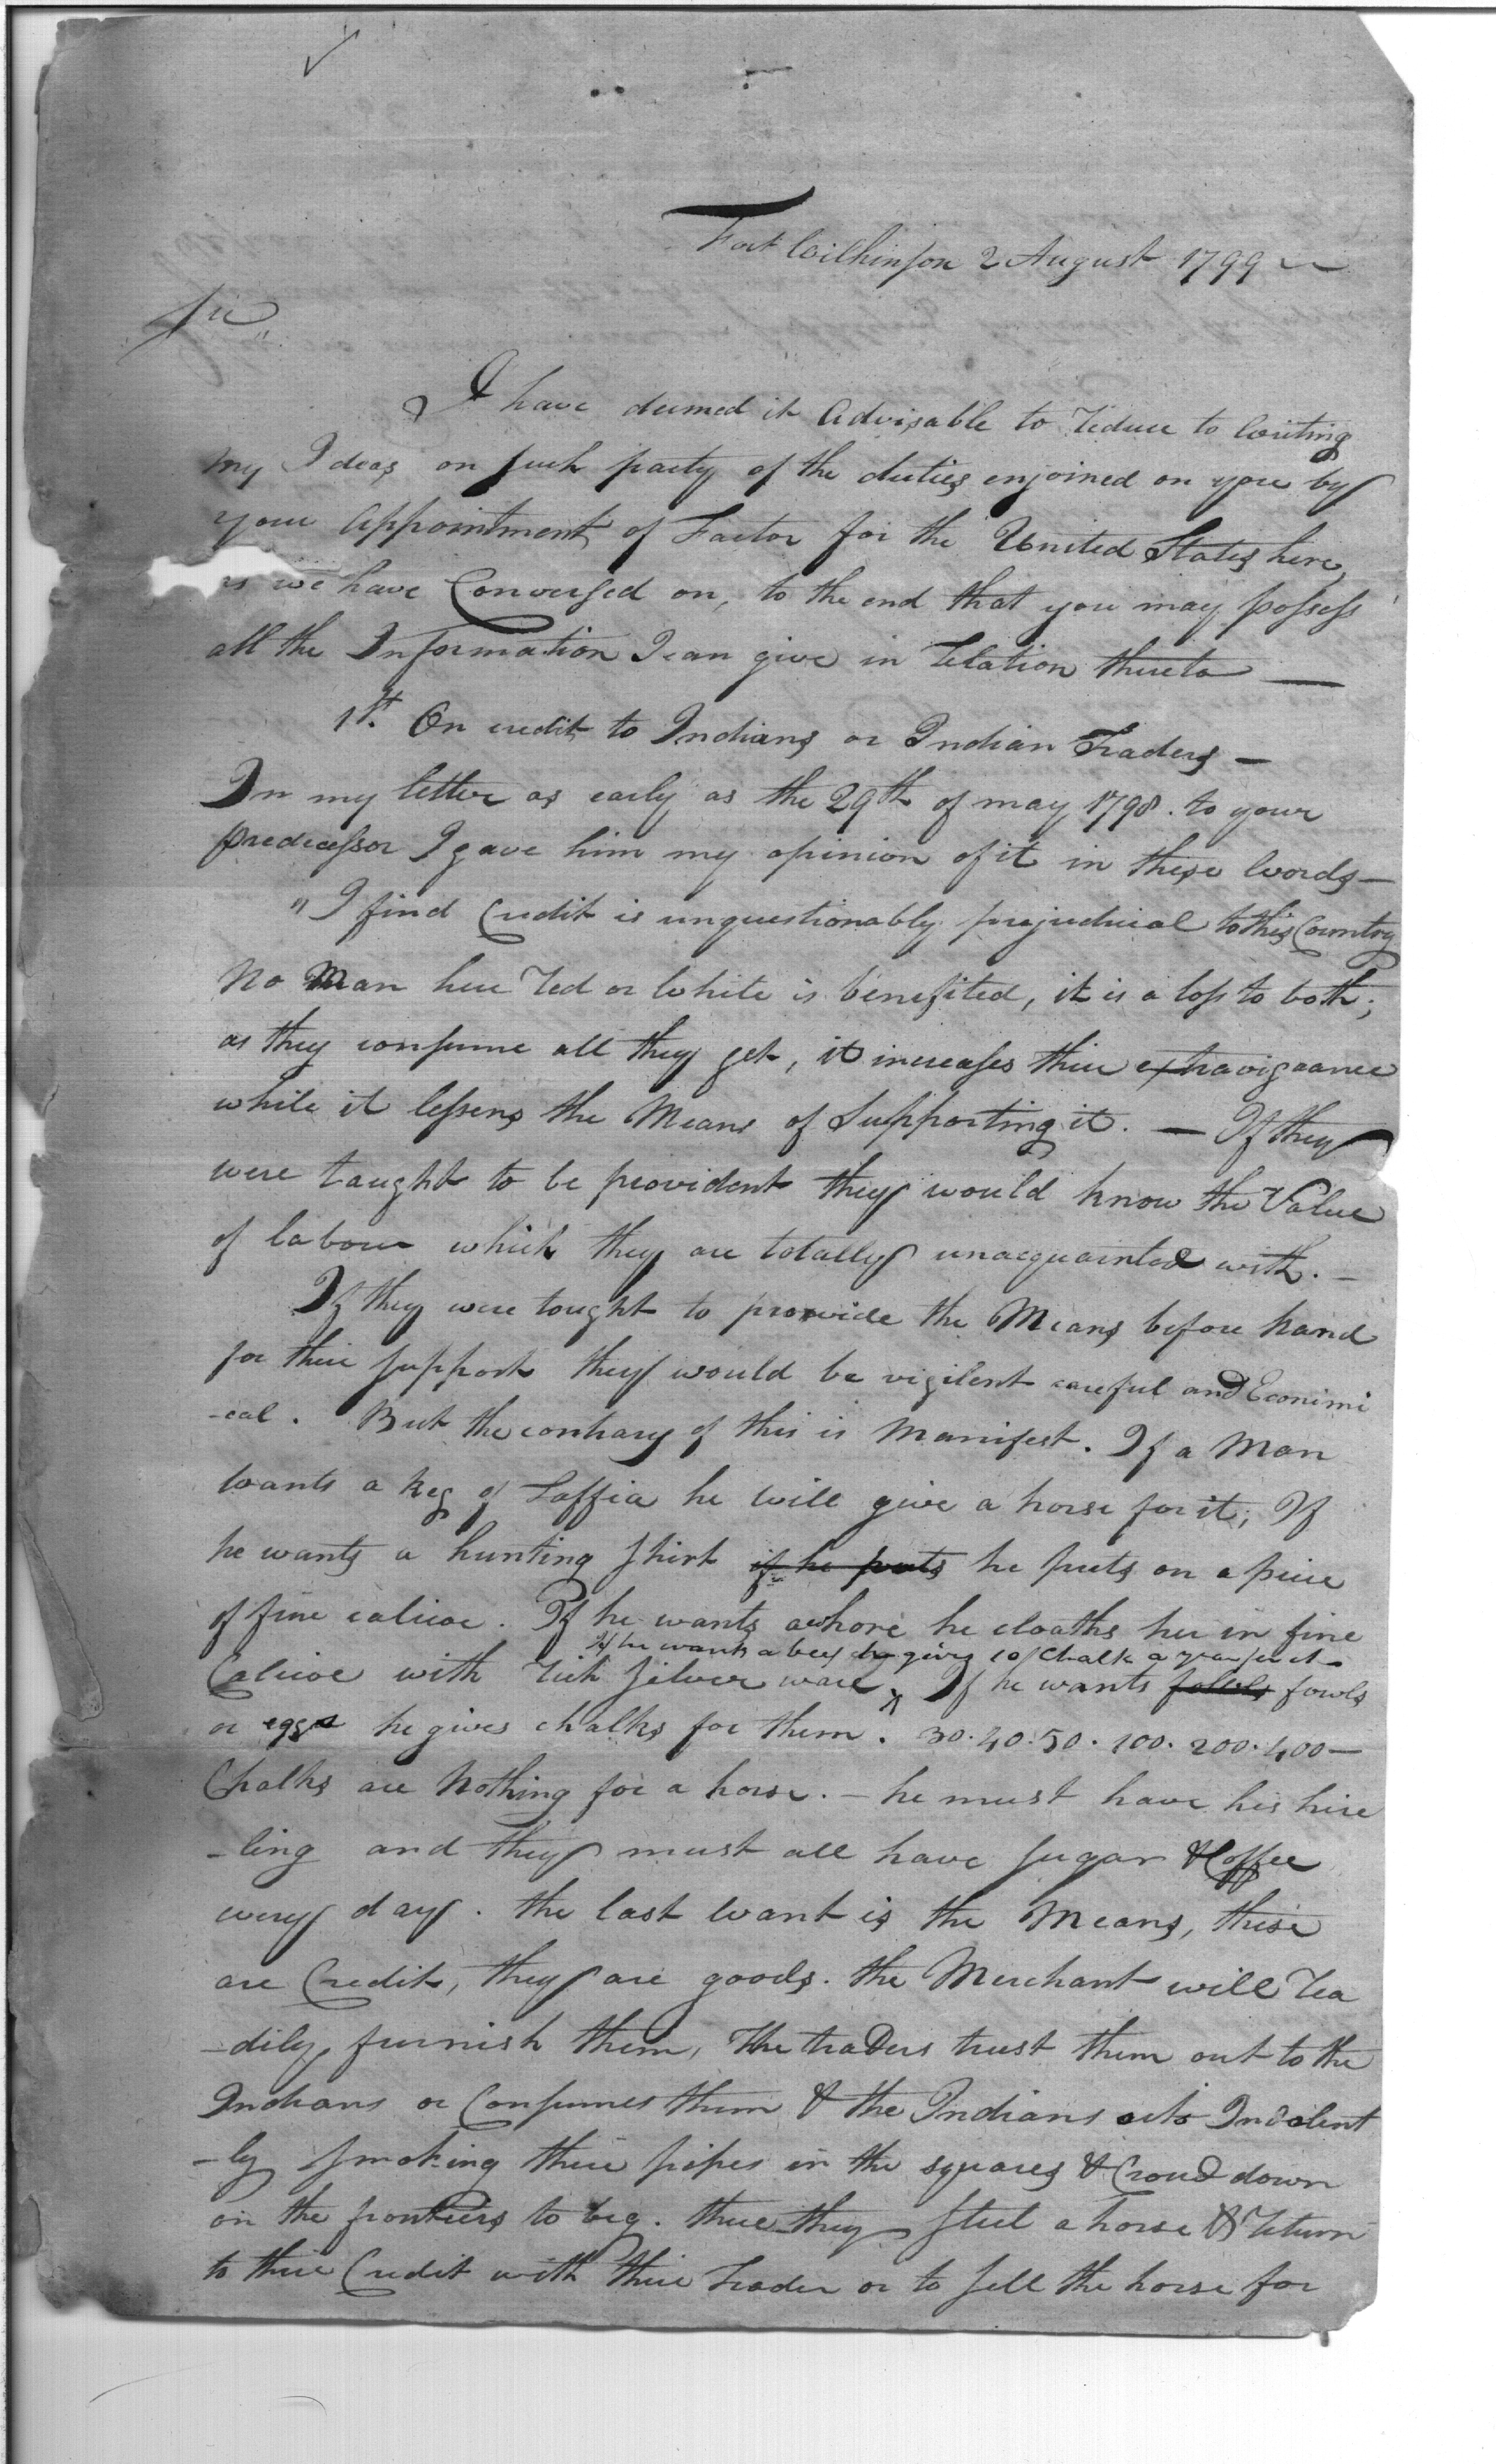 Fort Wilkinson 2 August 1799
Sir
I have deemed it advisable to reduce to writing
my Ideas on such parts of the duties enjoined on you by
your appointment of Factor for the United States here,
as we have Conversed on, to the end that you may possess
all the Information I can give in relation thereto —
1st. On credit to Indians or Indian Traders —
In my letter as early as the 29th of may 1798. to your
predecessor I gave him my opinion of it in these words —
"I find Credit is unquestionably prejudicial to this Country
No Man here red or white is benefited, it is a loss to both;
as they consume all they get, it increases their extravigance
while it lessens the Means of Supporting it. — If they
were taught to be provident they would know the Value
of labour which they are totally unacquainted with. —
If they were tought to provide the Means before hand
for their support they would be vigilent careful and Econimi
-cal. But the contrary of this is Manifest. If a Man
wants a keg of Taffia he will give a horse for it; If
he wants a hunting shirt if he puts he puts on a piece
of fine calicoe. If he wants a whore he cloaths her in fine
If he wants a bed he gives 10 Chalk a year for it
Calicoe with rich silver ware, If he wants fowls
or eggs he gives chalks for them. 30. 40. 50. 100. 200. 400 —
Chalks are Nothing for a horse. — he must have his hire
-ling and they must all have sugar & Coffee
every day. the last want is the Means, these
are Credit, they are goods. the Merchant will rea
-dily furnish them, the traders trust them out to the
Indians or Consumes them & the Indians sits Indolent
-ly smoking their pipes in the squares & Croud down
on the frontiers to beg. there they steel a horse & return
to their Credit with their Trader or to sell the horse for